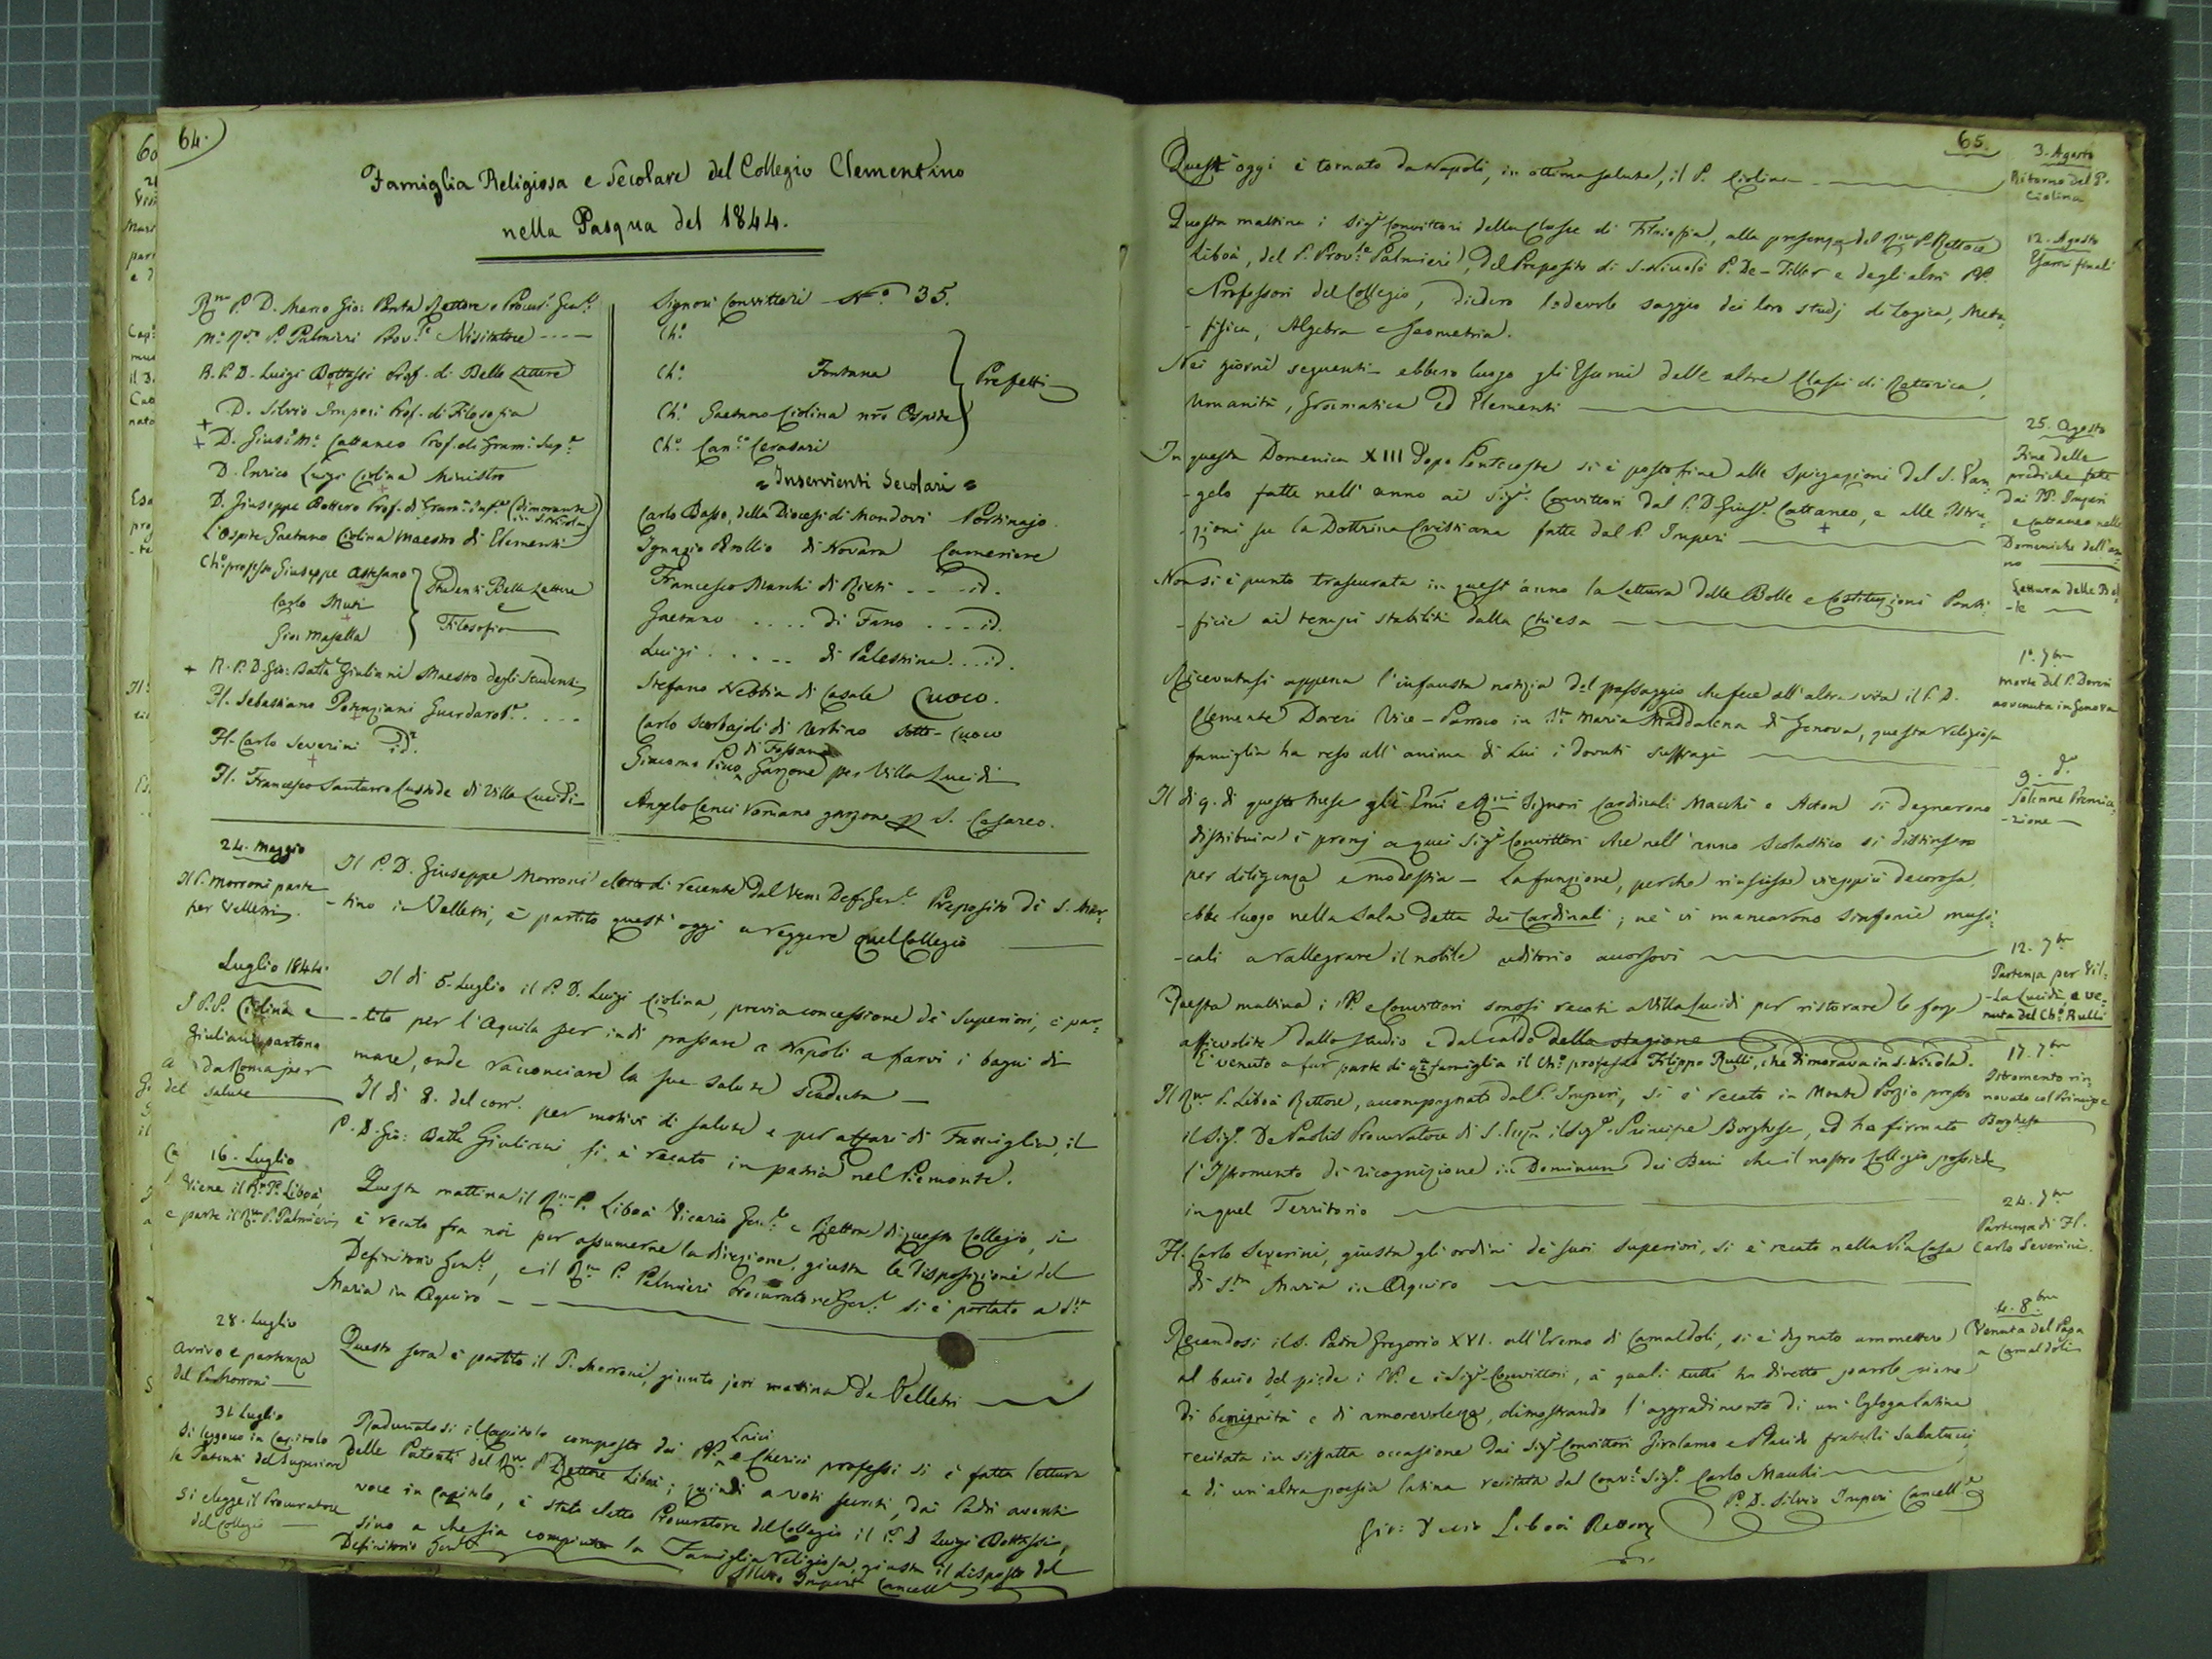 64.
Famiglia Religiosa e Secolare del Collegio Clementino
nella Pasqua del 1844.
R.mo P. D. Marco Gio: Ponta Rettore e Procur.e Gen.le
M.o R.do P. Palmieri Prov.le e Visitatore
R. P. D. Luigi Bottassi Prof. di Belle Lettere
D. Silvio Imperi Prof. di Filosofia
D. Gius. M.a Cattaneo Prof. di Gram. Sup.e
D. Enrico Luigi Ciolina Ministro
D. Giuseppe Bottero Prof. di Gram. inf.e (dimorante
in S. Nicola)
L'Ospite Gaetano Ciolina Maestro di Elementi
Ch.o professo Giuseppe Astesano
Carlo Muti
Gio: Majella
Studenti Belle Lettere
e
Filosofia
R. P. D. Gio: Batta Giuliani Maestro degli Studenti
Fl. Sebastiano Potenziani Guardarob.e
Fl. Carlo Severini id.
Fl. Francesco Santurro Custode di Villa Lucidi
Signori Convittori N.o 35.
Ch.o
Ch.o Fontana
Ch.o Gaetano Ciolina nro Ospite
Ch.o Can.co Cerasari
Prefetti
= Inservienti Secolari =
Carlo Basso, della Diocesi di Mondovì Portinajo
Ignazio Brollio di Novara Cameriere
Francesco Bianchi di Rieti .... id.
Gaetano .... di Fano ... id.
Luigi ..... di Palestrina .. id.
Stefano Nebbia di Casale Cuoco.
Carlo di sotto-cuoco
di Fossano
Giacomo Pino Garzone per Villa Lucidi
Angelo Cenci Romano garzone p S. Cesareo.
24. Maggio
Il P. Morroni parte
per Velletri.
Il P. D. Giuseppe Morroni eletto di recente dal Ven. Def. Gen.le Preposito di S. Mar-
-tino in Velletri, è partito quest'oggi a reggere quel Collegio
Luglio 1844.
I P.P. Ciolina e
Giuliani partono
da Roma per
salute
Il di 5. Luglio il P. D. Luigi Ciolina, previa concessione de' Superiori, è par-
-tito per l'Aquila per indi passare a Napoli a farvi i bagni di
mare, onde racconciare la sua salute scaduta
Il di 8. del corr. per motivi di salute e per affari di Famiglia, il
P. D. Gio: Batta Giuliani si è recato in patria nel Piemonte.
16. Luglio
Viene il R.mo P. Liboà
e parte il R.mo P. Palmieri
Questa mattina il R.mo P. Liboà Vicario Gen.le e Rettore di questo Collegio, si
è recato fra noi per assumerne la direzione, giusta le disposizioni del
Definitorio Gen.le, e il R.mo P. Palmieri Procuratore Gen.le si è portato a S.ta
Maria in Aquiro
28. Luglio
Arrivo e partenza
del P. Morroni
Questa sera è partito il P. Morroni, giunto jeri mattina da Velletri
31. Luglio
Si leggono in Capitolo
le Patenti del Superiore
e
Si elegge il Procuratore
del Collegio
Radunatosi il Capitolo composto dai PP. Laici e Cherici professi si è fatta lettura
delle Patenti del R.mo P. Rettore Liboà; quindi a voti secreti, dai Padri aventi
voce in capitolo, è stato eletto Procuratore del Collegio il P. D. Luigi Bottassi,
sino a che sia compiuta la Famiglia Religiosa, giusta il disposto del
Definitorio Gen.le
Silvio Imperi Cancell.e
65.
Quest'oggi è tornato da Napoli, in ottima salute, il P. Ciolina
3. Agosto
Ritorno del P.
Ciolina
Questa mattina i Sig.ri Convittori della Classe di Filosofia, alla presenza del R.mo P. Rettore
Liboà, del P. Prov.le Palmieri, del Preposito di S. Nicolò P. De-Filler e degli altri PP.
Professori del Collegio, diedero lodevole saggio dei loro studj di Logica, Meta-
-fisica, Algebra e Geometria.
12. Agosto
Esami finali
Nei giorni seguenti ebbero luogo gli Esami delle altre Classi di Rettorica,
Umanità, Grammatica ed Elementi
In questa Domenica XIII dopo Pentecoste si è posto fine alle spiegazioni del S. Van-
-gelo fatte nell'anno ai Sig.ri Convittori dal P. D. Gius.e Cattaneo, e alle Istru-
-zioni su la Dottrina Cristiana fatte dal P. Imperi
25. Agosto
Fine delle
prediche fatte
dai PP. Imperi
e Cattaneo nelle
Domeniche dell'an-
no
Non si è punto trascurata in quest'anno la Lettura delle Bolle e Costituzioni Ponti-
-ficie ai tempi stabiliti dalla Chiesa
Lettura delle Bol-
-le
Ricevutasi appena l'infausta notizia del passaggio che fece all'altra vita il P. D.
Clemente Doveri Vice-Parroco in S.ta Maria Maddalena di Genova, questa religiosa
famiglia ha reso all'anima di Lui i dovuti suffragi
1.o 7bre
Morte del P. Doveri
avvenuta in Genova
Il di 9. di questo mese gli Emi e R.mi Signori Cardinali Macchi e Acton si degnarono
distribuire i premj a quei Sig.ri Convittori che nell'anno scolastico si distinsero
per diligenza e modestia - La funzione, perchè riuscisse vieppiù decorosa,
ebbe luogo nella Sala detta dei Cardinali; nè vi mancarono sinfonie musi-
-cali a rallegrare il nobile uditorio accorsovi
9. d.o
Solenne Premia-
-zione
Questa mattina i PP. e Convittori sonosi recati a Villa Lucidi per ristorare le forze
affievolite dallo studio e dal caldo della stagione
È venuto a far parte di qta famiglia il Ch.o professo Filippo Rulli, che dimorava in S. Nicola.
12. 7bre
Partenza per Vil-
-la Lucidi, e ve-
nuta del Ch.o Rulli
Il R.mo P. Liboà Rettore, accompagnato dal P. Imperi, si è recato in Monte Porzio presso
il Sig.r De Paolis Procuratore di S. Ecc.za il Sig.r Principe Borghese, ed ha firmato
l'Istromento di ricognizione in Dominum dei Beni che il nostro Collegio possiede
in quel Territorio
17. 7bre
Istromento rin-
novato col Principe
Borghese
Fl. Carlo Severini, giusta gli ordini de' suoi Superiori, si è recato nella Pia Casa
di S.ta Maria in Aquiro
24. 7bre
Partenza di Fl.
Carlo Severini.
Recandosi il S. Padre Gregorio XVI. all'Eremo di Camaldoli, si è degnato ammettere
al bacio del piede i PP. e i Sig.ri Convittori, a' quali tutti ha dirette parole piene
di benignità e di amorevolezza, dimostrando l'aggradimento di un'Egloga latina
recitata in siffatta occasione dai Sig.ri Convittori Girolamo e Placido fratelli Sabatucci,
e di un'altra poesia latina recitata dal Conv.e Sig.r Carlo Macchi
4. 8bre
Venuta del Papa
a Camaldoli
P. D. Silvio Imperi Cancell.e
Gio: Decio Liboà Rettore